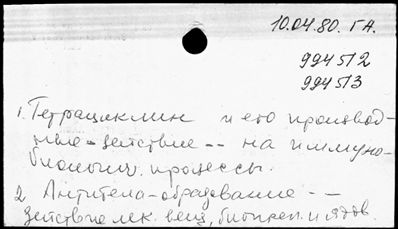 10.04.80. ГА.
994512
994513
1. Тетрациклин и его производ-
ные - действие -- на иммуно-
биологич. процессы.
2. Антитела - образование --
действие лек. вещ., биопреп. и ядов.